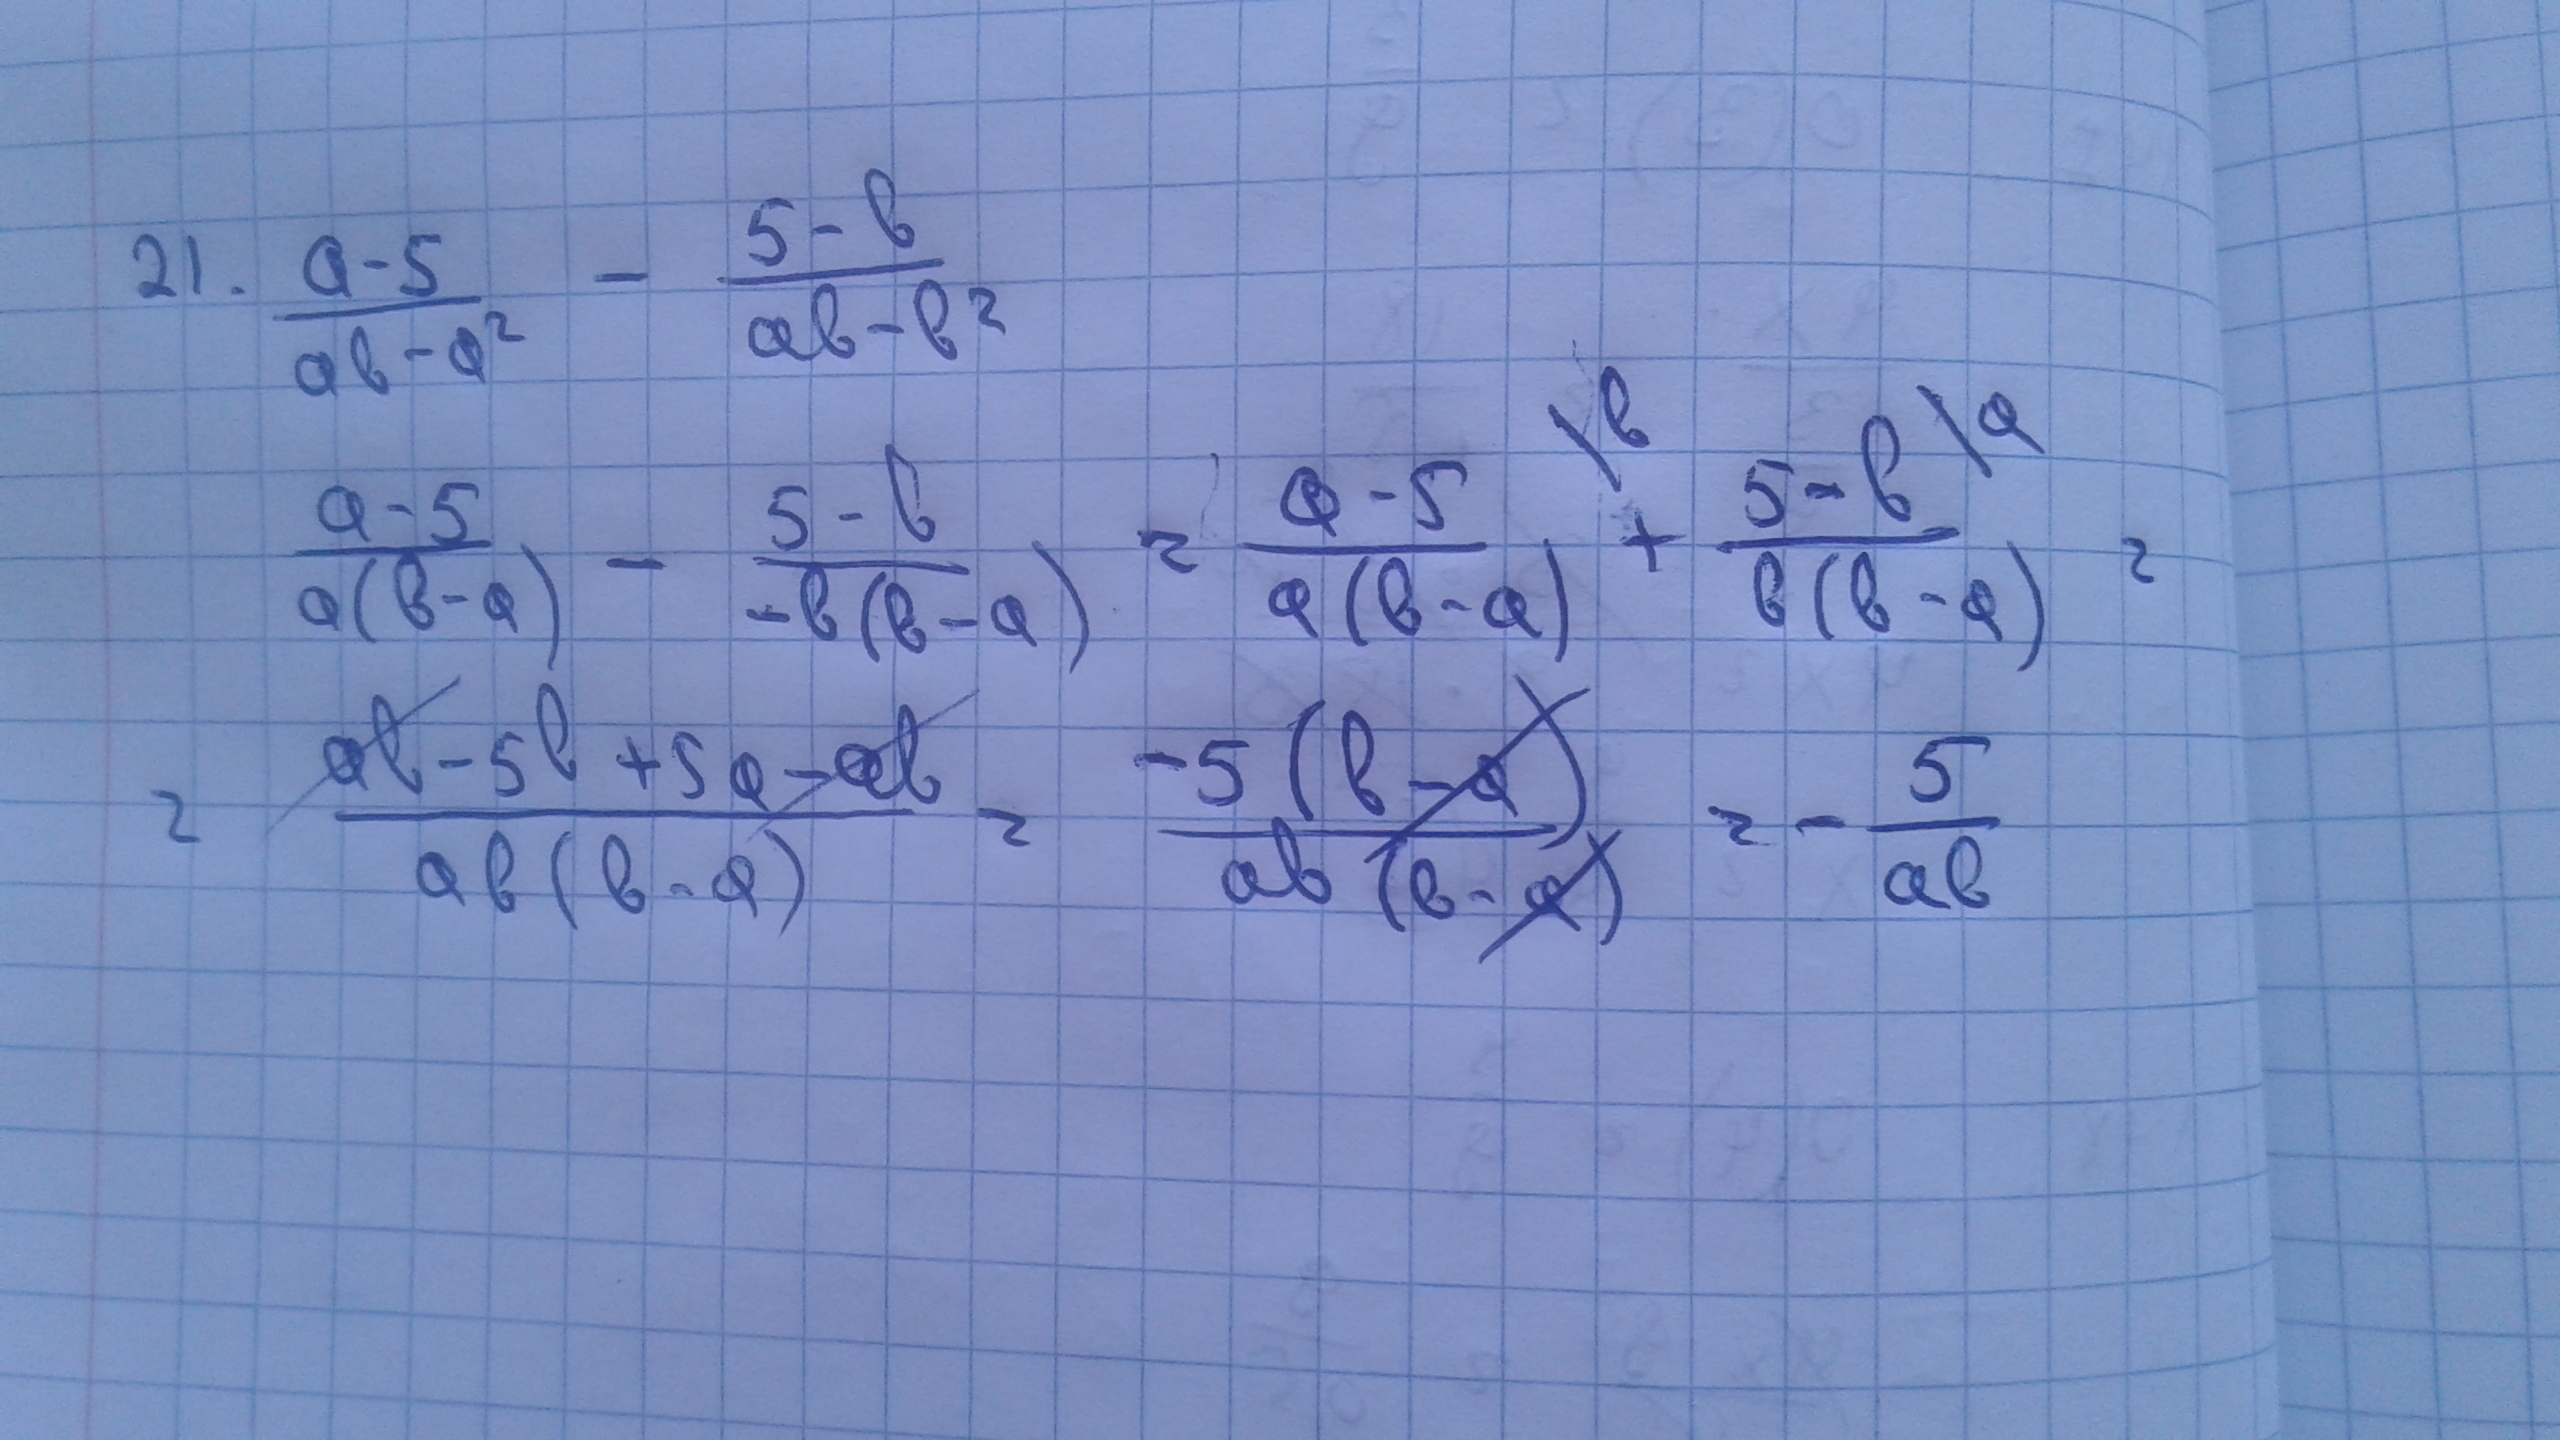 21. (a-5)/(ab-a²) - (5-b)/(ab-b²)
(a-5)/(a(b-a)) - (5-b)/(-b(b-a)) = (a-5)/(a(b-a)) \b + (5-b)/(b(b-a)) \a =
= (ab-5b+5a-ab)/(ab(b-a)) = (-5(b-a))/(ab(b-a)) = - 5/(ab)